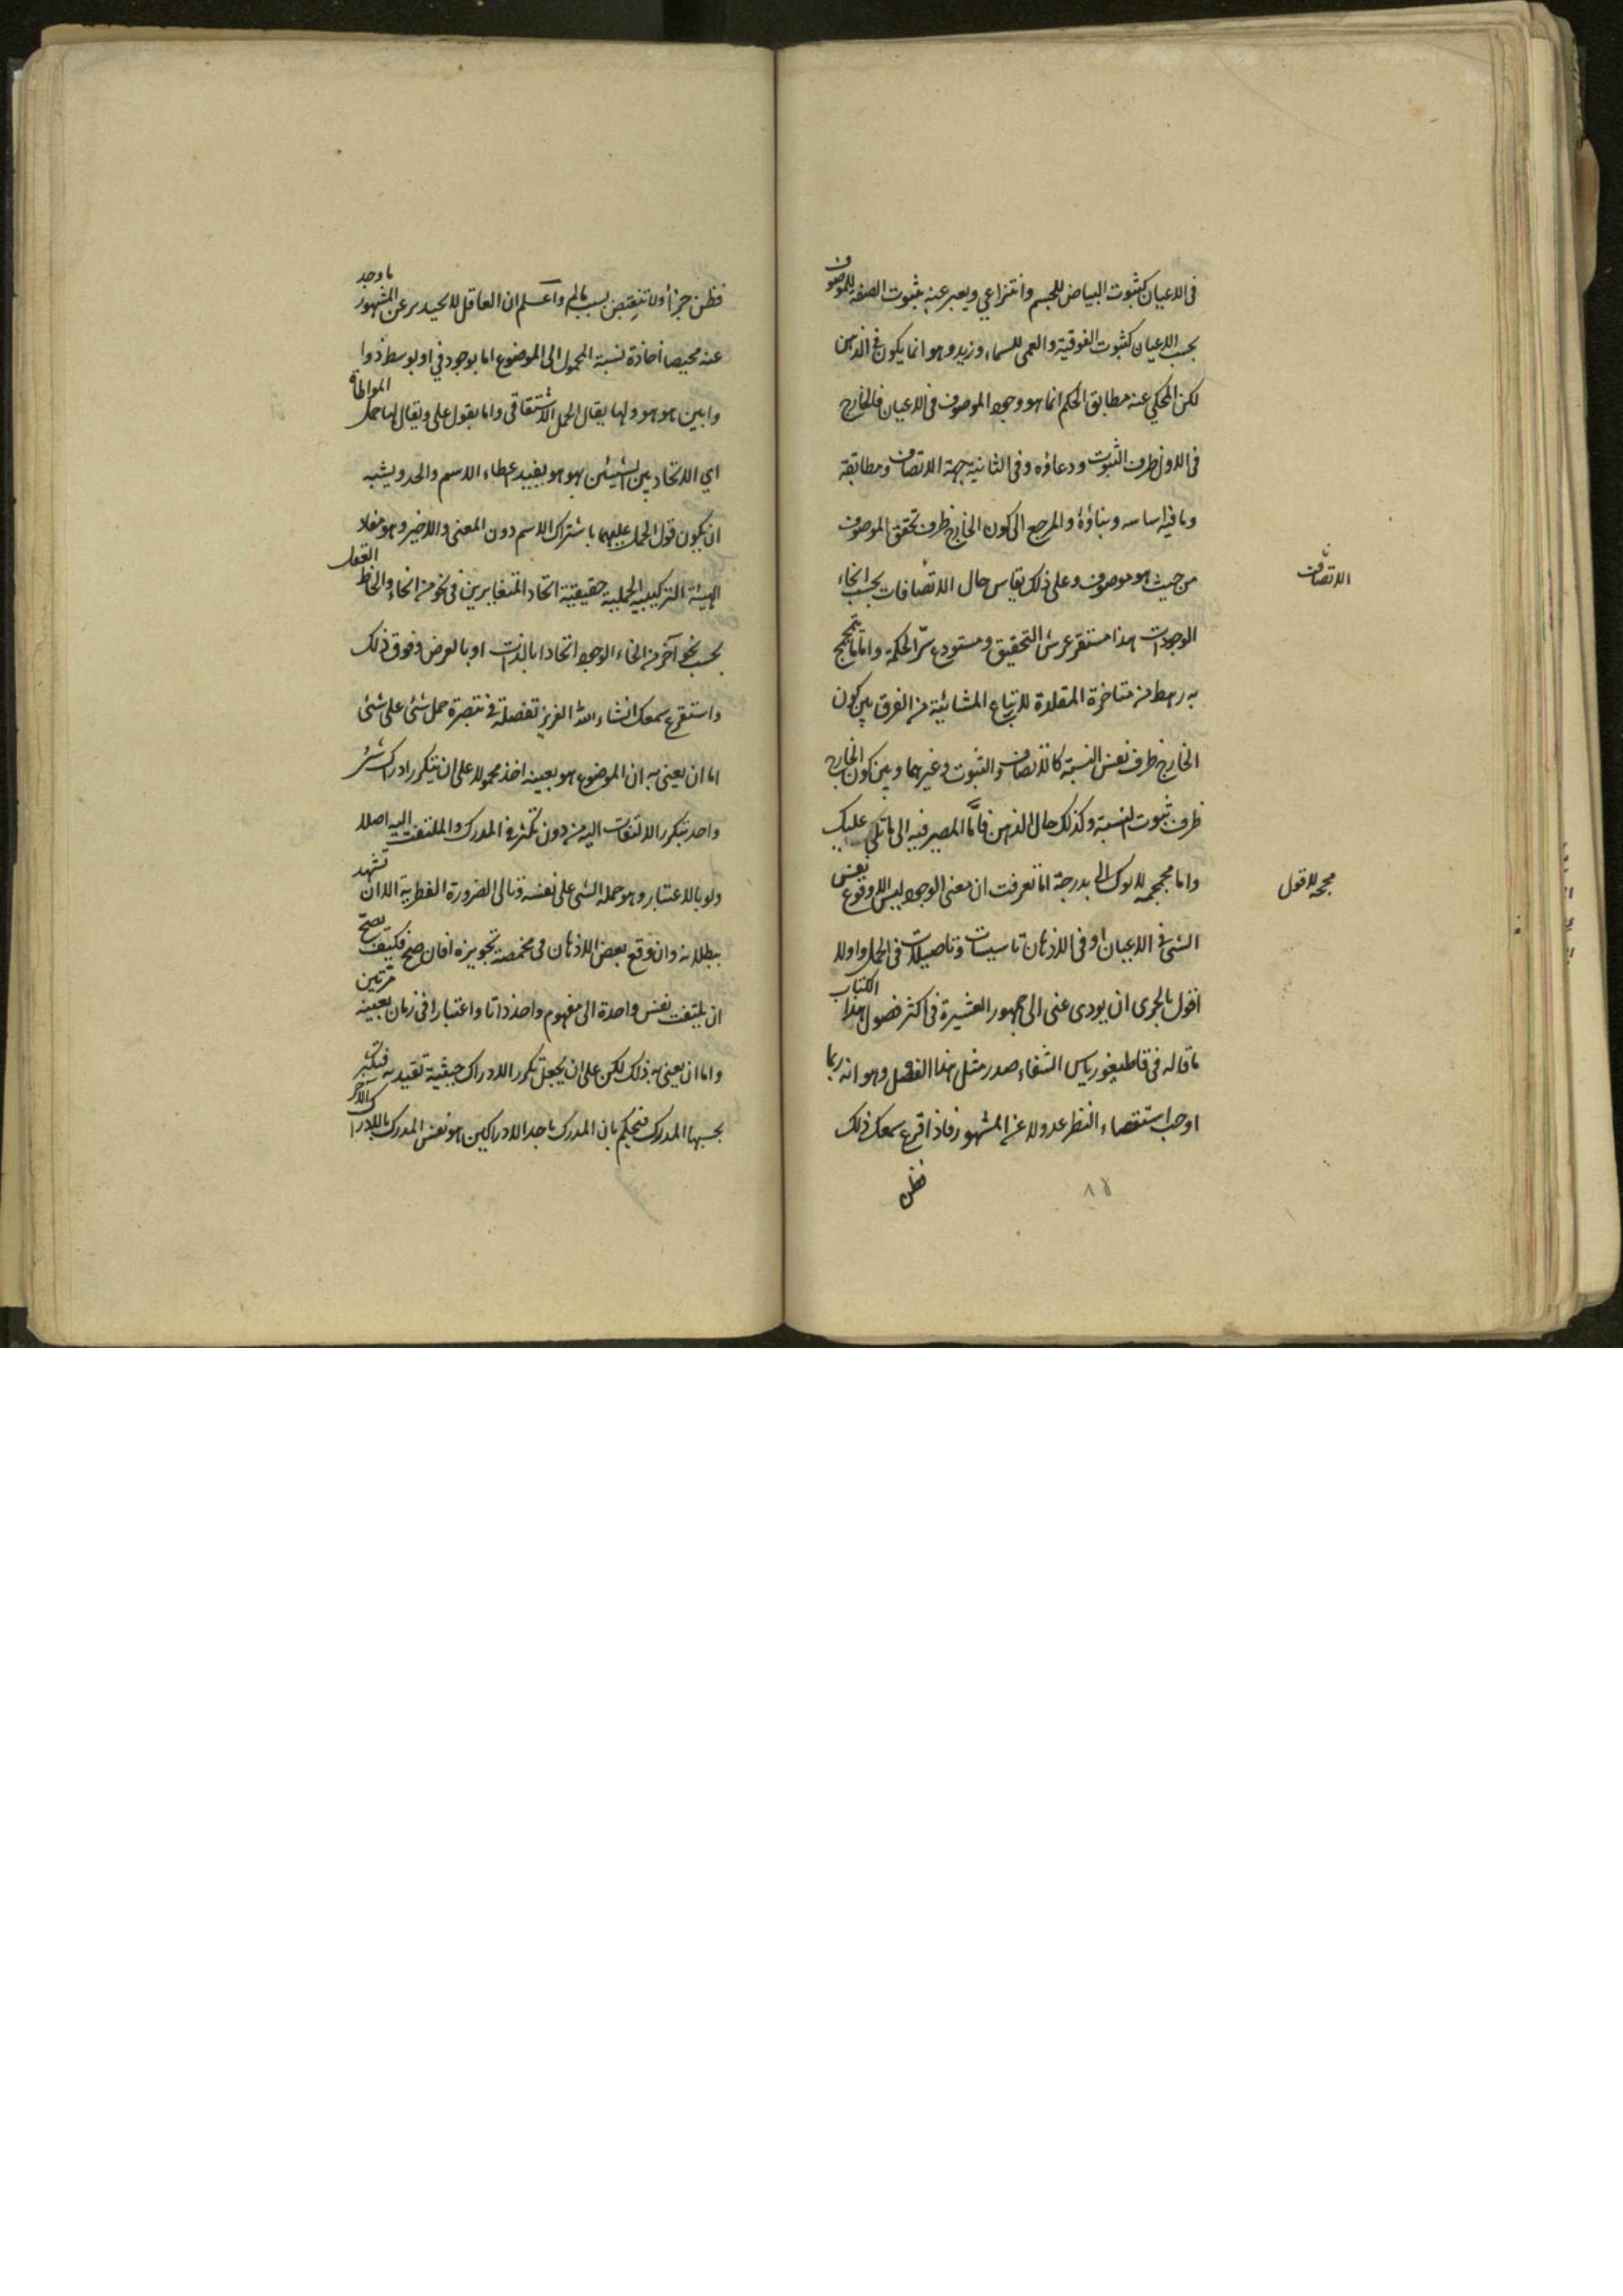 فى الاعيان كثبوت البياض للجسم وانتزاعي ويعبر عنه بثبوت الصفة للموصوف
بحسب الاعيان كثبوت الفوقية والعمى للسماء وزيد وهو انما يكون فى الذهن
لكن المحكي عنه مطابق الحكم انما هو وجود الموصوف فى الاعيان فالخارج
فى الاول ظرف الثبوت ودعاؤه وفى الثانية جهة الاتصاف ومطابقة
وما فيه اساسه وبناؤه والمرجع الى كون الخارج ظرف تحقق الموصوف
من حيث هو موصوف وعلى ذلك يقاس حال الاتصافات بحسب انحاء
الاتصاف
الوجودات هذا مستقر عرش التحقيق ومستودع سر الحكمة واما ما يتمجمج
به رهط من متاخرة المقلدة لاتباع المشائية من الفرق بين كون
الخارج ظرف نفس النسبة كالاتصاف والثبوت وغيرهما وبين كون الخارج
ظرف ثبوت النسبة وكذلك حال الذهن فانما المصير فيه الى ما تلي عليك
واما مجمجمه بدرجة اما تعرفت ان معنى الوجود ليس الا وقوع نفس
مجمجه لا قول
الشئ فى الاعيان او فى الاذهان تاسيسات وتاصيلات فى الحمل واولا
اقول بالحرى ان يودى عنى الى جمهور العشيرة فى اكثر فصول هذا الكتاب
ما قاله فى قاطيغورياس الشفاء صدر مثل هذا الفصل وهو انه ربما
اوجب استقصاء النظر عدولا عن المشهور فاذا قرع سمعك ذلك
فظن
١٨
فظن خيرا ولا تنقبض بسبب ما لم واعلم ان العاقل لا يحيد عن المشهور ما وجد
عنه محيصا نسبة المحمول الى الموضوع اما بوجود في او بوسط ذو او
وابين هو هو ولها يقال الحمل الاشتقاقى واما بقول على ويقال لها حمل المواطاة
اي الاتحاد بين الشيئين بهو هو يفيد اعطاء الاسم والحد ويشبه
ان يكون قول الحمل عليهما باشتراك الاسم دون المعنى والاخير وهو مفاد
الهيئة التركيبية الحملية حقيقته اتحاد المتغايرين فى نحو من انحاء لحاظ العقل
بحسب نحو آخر من انحاء الوجود اتحادا بالذات او بالعرض وفوق ذلك
واستقرع سمعك انشاء الله العزيز تفصله فى تبصرة حمل شئ على شئ
اما ان يعنى به ان الموضوع هو بعينه اخذ محمولا على ان يتكرر ادراك شئ
واحد بتكرر الالتفات اليه من دون تكثر فى المدرك والملتفت اليه اصلا
ولو بالاعتبار وهو حمل الشئ على نفسه وتالى الضرورة الفطرية الا ان تشهد
ببطلانه وان وقع بعض الاذهان فى مخمصة تجويزه افان صح فكيف يصح
ان يلتفت نفس واحدة الى مفهوم واحد ذاتا واعتبارا فى زمان بعينه مرتين
واما ان يعنى به ذلك لكن على ان يجعل تكرر الادراك حيثية تقييدية فتكثر
بحسبها المدرك فتحكم بان المدرك باحد الادراكين هو نفس المدرك بالادراك الآخر